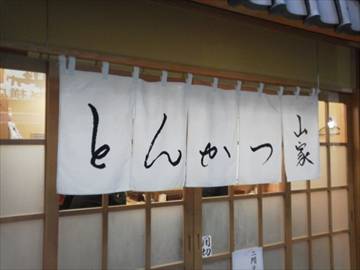 とんかつ
山家